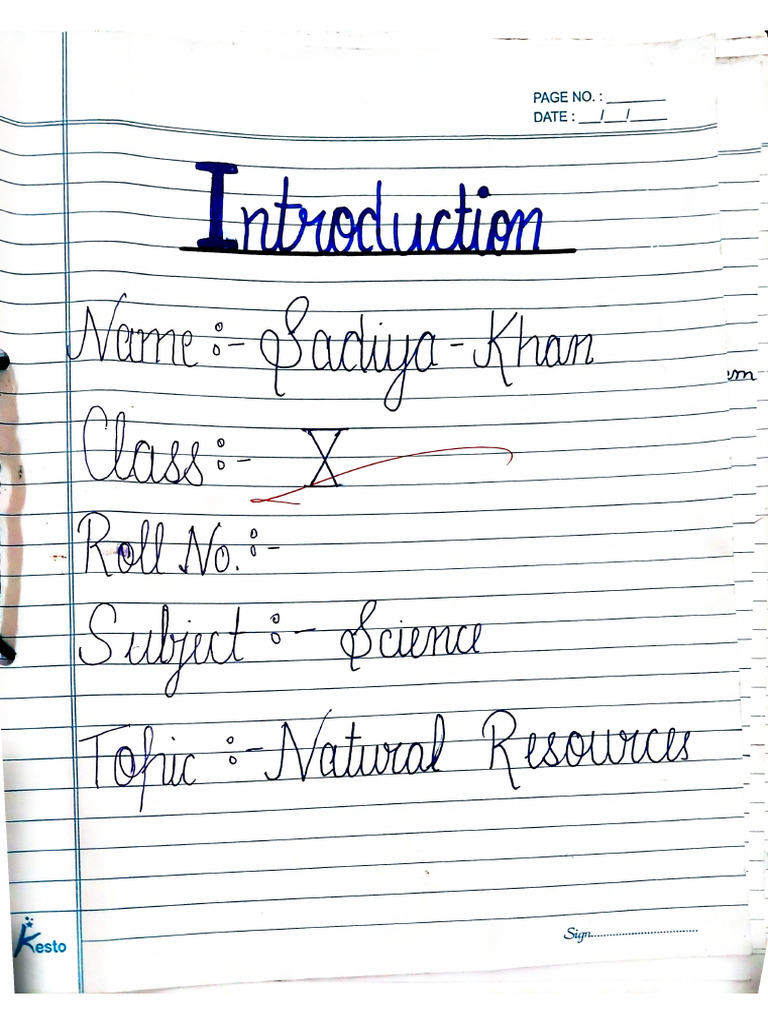 PAGE NO. : ________
DATE : __/__/____
Introduction
Name :- Sadiya - Khan
Class :- X
Roll No. :-
Subject :- Science
Topic :- Natural Resources
Sign....................................
Kesto